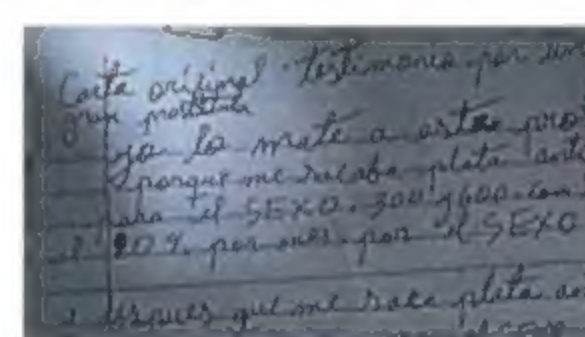 Carta original - Testimonio por un
gran prostituta
yo la mate a esta pros
porque me sacaba plata antes
para el SEXO. 300 y 600. con
el 20% por mes. por el SEXO
despues que me saca plata